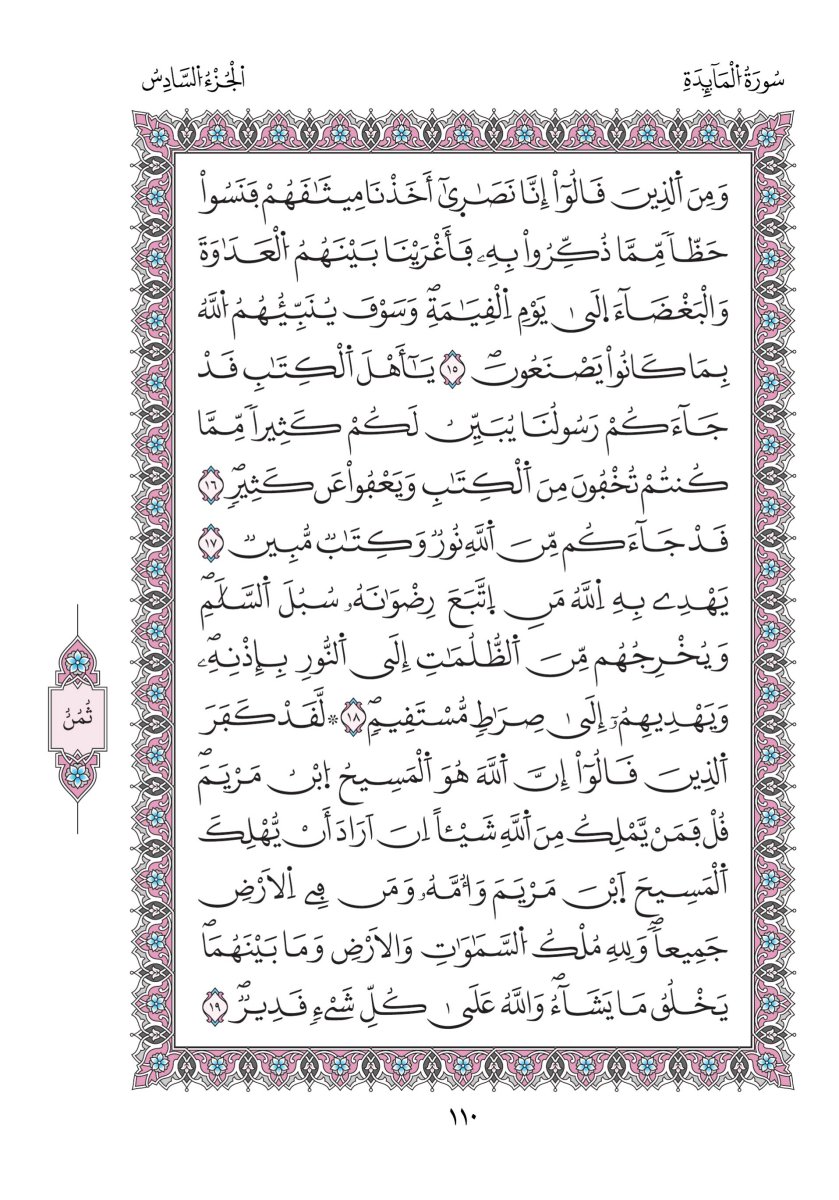 سُورَةُ الْمَآئِدَةِ
الْجُزْءُ السَّادِسُ
وَمِنَ اَ۬لذِينَ قَالُوٓاْ إِنَّا نَصَٰر۪يٰٓ أَخَذْنَا مِيثَٰقَهُمْ فَنَسُواْ
حَظّاٗ مِّمَّا ذُكِّرُواْ بِهِۦ فَأَغْرَيْنَا بَيْنَهُمُ اُ۬لْعَدَاوَةَ
وَالْبَغْضَآءَ اِ۪لَيٰ يَوْمِ اِ۬لْقِيَٰمَةِۖ وَسَوْفَ يُنَبِّئُهُمُ اُ۬للَّهُ
بِمَا كَانُواْ يَصْنَعُونَۖ ١٥ يَٰٓأَهْلَ اَ۬لْكِتَٰبِ قَدْ
جَآءَكُمْ رَسُولُنَا يُبَيِّنُ لَكُمْ كَثِيراٗ مِّمَّا
كُنتُمْ تُخْفُونَ مِنَ اَ۬لْكِتَٰبِ وَيَعْفُواْ عَن كَثِيرٖۖ ١٦
قَدْ جَآءَكُم مِّنَ اَ۬للَّهِ نُورٞ وَكِتَٰبٞ مُّبِينٞ ١٧
يَهْدِے بِهِ اِ۬للَّهُ مَنِ اِ۪تَّبَعَ رِضْوَٰنَهُۥ سُبُلَ اَ۬لسَّلَٰمِۖ
وَيُخْرِجُهُم مِّنَ اَ۬لظُّلُمَٰتِ إِلَي اَ۬لنُّورِ بِإِذْنِهِۦۖ
وَيَهْدِيهِمُۥٓ إِلَيٰ صِرَٰطٖ مُّسْتَقِيمٖۖ ١٨ ۞ لَّقَدْ كَفَرَ
اَ۬لذِينَ قَالُوٓاْ إِنَّ اَ۬للَّهَ هُوَ اَ۬لْمَسِيحُ اُ۪بْنُ مَرْيَمَۖ
قُلْ فَمَنْ يَّمْلِكُ مِنَ اَ۬للَّهِ شَيْـٔاً اِنَ اَرَادَ أَنْ يُّهْلِكَ
اَ۬لْمَسِيحَ اَ۪بْنَ مَرْيَمَ وَأُمَّهُۥ وَمَن فِے اِ۬لَارْضِ
جَمِيعاٗۖ وَلِلهِ مُلْكُ اُ۬لسَّمَٰوَٰتِ وَالَارْضِ وَمَا بَيْنَهُمَاۖ
يَخْلُقُ مَا يَشَآءُۖ وَاللَّهُ عَلَيٰ كُلِّ شَےْءٖ قَدِيرٞۖ ١٩
ثُمُنُ
١١٠